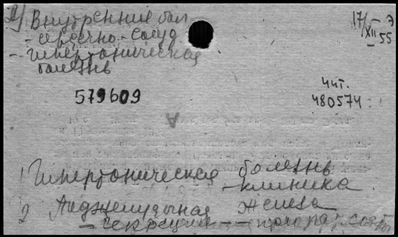 2) Внутренние бол.
- сердечно-сосуд
- гипертоническая
болезнь
17/XII-55 Э
579609
чит.
480574
1 Гипертоническая болезнь
- клиника
2 Поджелудочная железа
- секреция -